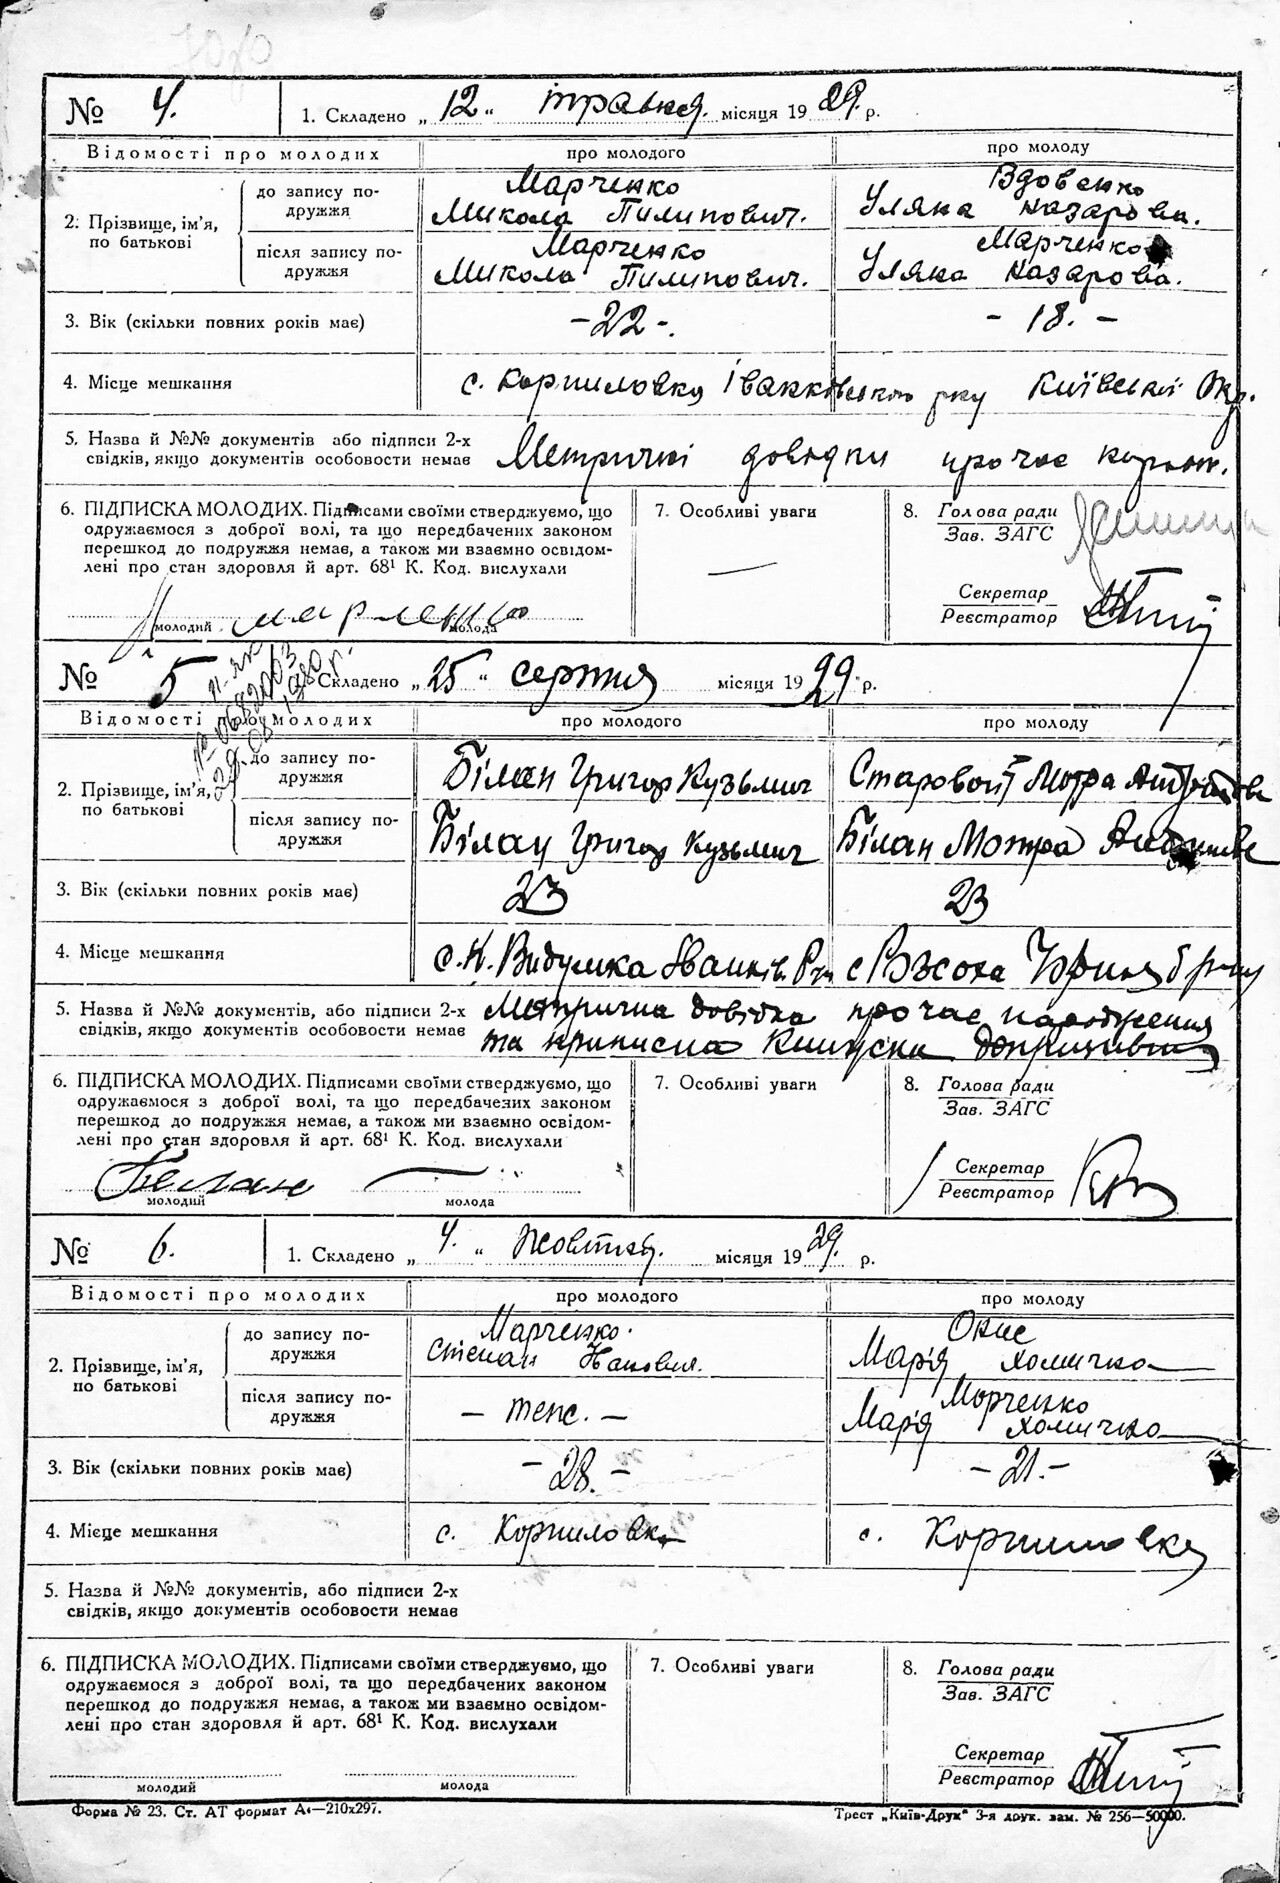 № 4. 1. Складено „12“ травня. місяця 1929. р.
Відомості про молодих про молодого про молоду
2. Прізвище, ім’я, по батькові
до запису подружжя
Марченко
Микола Пилипович.
Вдовенко
Уляна Назарова.
після запису подружжя
Марченко
Микола Пилипович.
Марченко
Уляна Назарова.
3. Вік (скільки повних років має) -22-. - 18. -
4. Місце мешкання с. Корниловка Іванковського р-ну Київської Окр.
5. Назва й №№ документів або підписи 2-х
свідків, якщо документів особовости немає
Метричні довідки про час
6. ПІДПИСКА МОЛОДИХ. Підписами своїми стверджуємо, що
одружаємося з доброї волі, та що передбачених законом
перешкод до подружжя немає, а також ми взаємно освідом-
лені про стан здоров’я й арт. 68¹ К. Код. вислухали
Марченко
молодий молода
7. Особливі уваги
—
8. Голова ради
Зав. ЗАГС
Секретар
Реєстратор
№ 5 Складено „25“ серпня місяця 1929 р.
Відомості про молодих про молодого про молоду
2. Прізвище, ім’я,
по батькові
до запису по-
дружжя
Білан Григор Кузьмич
Старовойт Мотра
після запису по-
дружжя
Білан Григор Кузьмич
Білан Мотра
3. Вік (скільки повних років має) 23 23
4. Місце мешкання с. К. Видумка Іванків. Р-ну с
5. Назва й №№ документів, або підписи 2-х
свідків, якщо документів особовости немає
Метрична довідка про час народження
та приписна
6. ПІДПИСКА МОЛОДИХ. Підписами своїми стверджуємо, що
одружаємося з доброї волі, та що передбачених законом
перешкод до подружжя немає, а також ми взаємно освідом-
лені про стан здоров’я й арт. 68¹ К. Код. вислухали
Белан
молодий молода
7. Особливі уваги
8. Голова ради
Зав. ЗАГС
Секретар
Реєстратор
№ 6. 1. Складено „4.“ Жовтня. місяця 1929. р.
Відомості про молодих про молодого про молоду
2. Прізвище, ім’я,
по батькові
до запису по-
дружжя
Марченко.
Степан
Марія Хомичко
після запису по-
дружжя
Марченко
Марія Хомичко
3. Вік (скільки повних років має) -28.- -21.-
4. Місце мешкання с. Корниловка с. Корниловка
5. Назва й №№ документів, або підписи 2-х
свідків, якщо документів особовости немає
6. ПІДПИСКА МОЛОДИХ. Підписами своїми стверджуємо, що
одружаємося з доброї волі, та що передбачених законом
перешкод до подружжя немає, а також ми взаємно освідом-
лені про стан здоров’я й арт. 68¹ К. Код. вислухали
молодий молода
7. Особливі уваги
8. Голова ради
Зав. ЗАГС
Секретар
Реєстратор
Форма № 23. Ст. АТ формат А₄—210x297.
Трест „Київ-Друк“ 3-я друк. зам. № 256—50000.